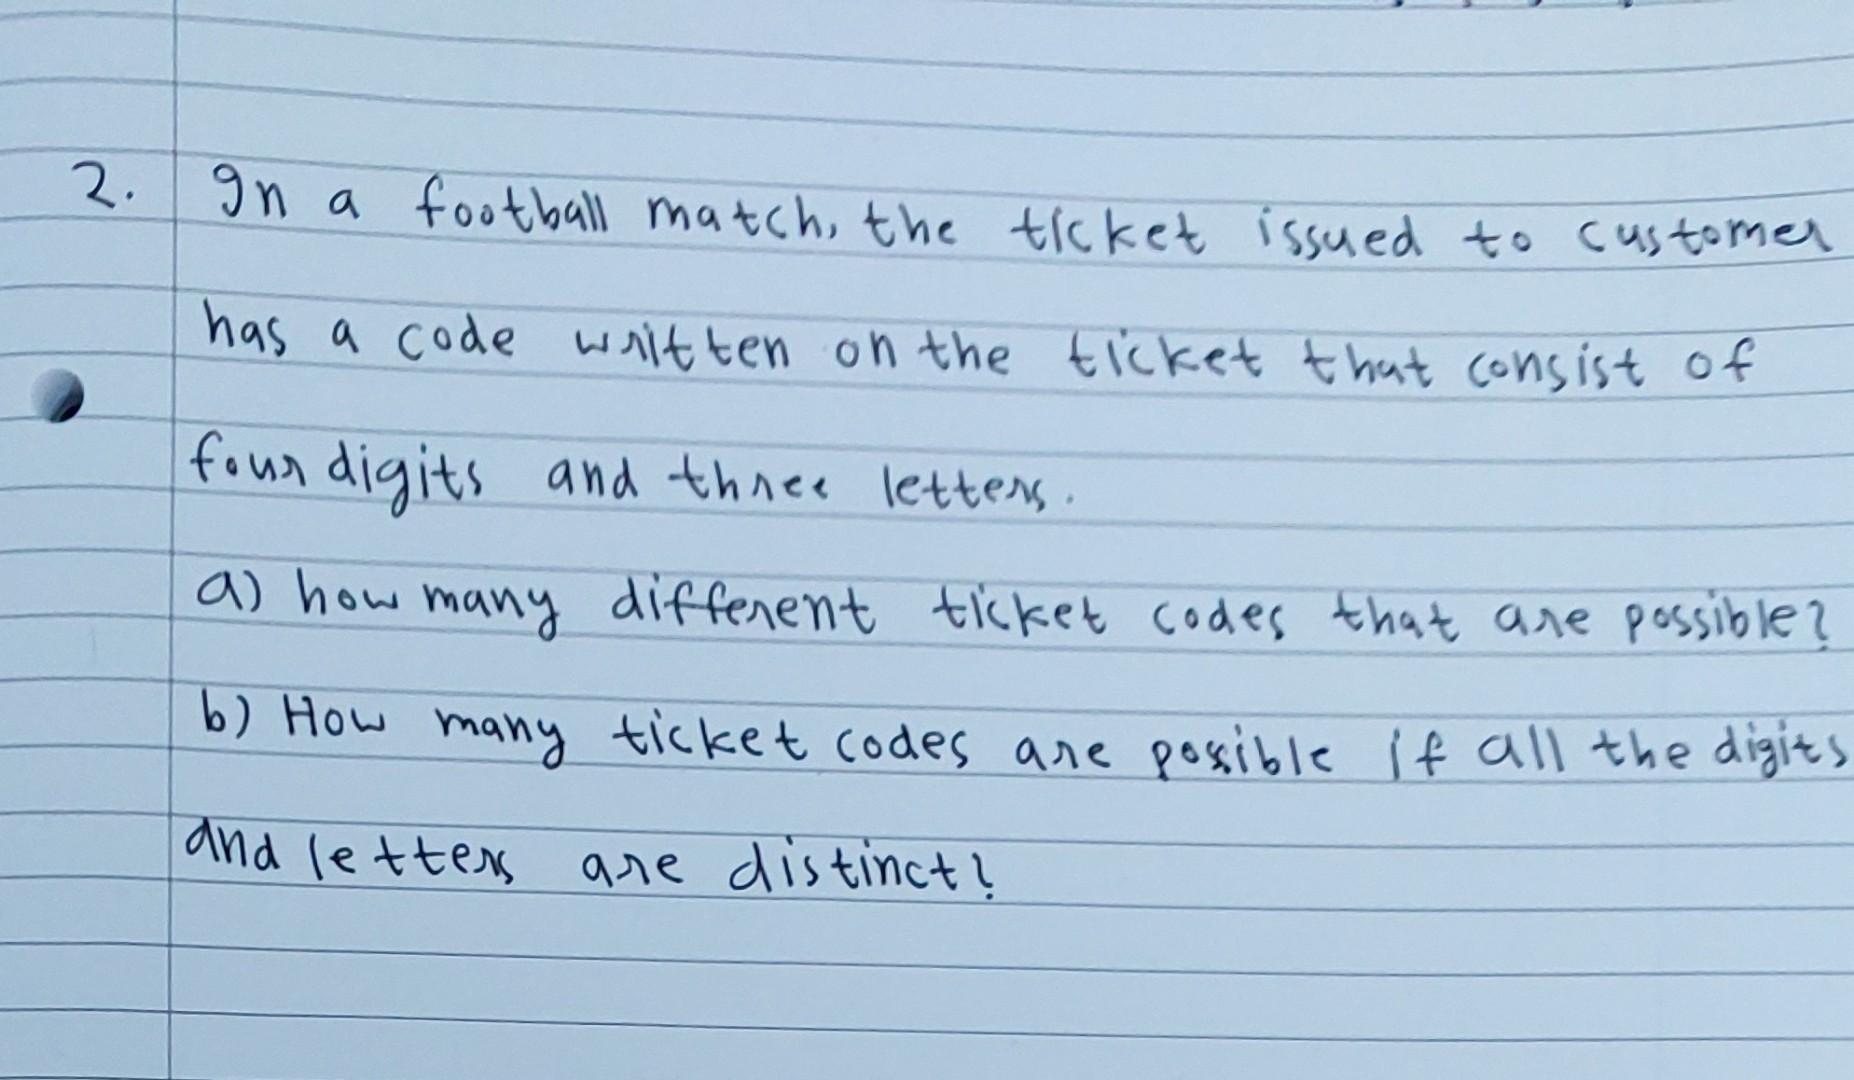 2. In a football match, the ticket issued to customer
has a code written on the ticket that consist of
four digits and three letters.
a) how many different ticket codes that are possible?
b) How many ticket codes are possible if all the digits
and letters are distinct?